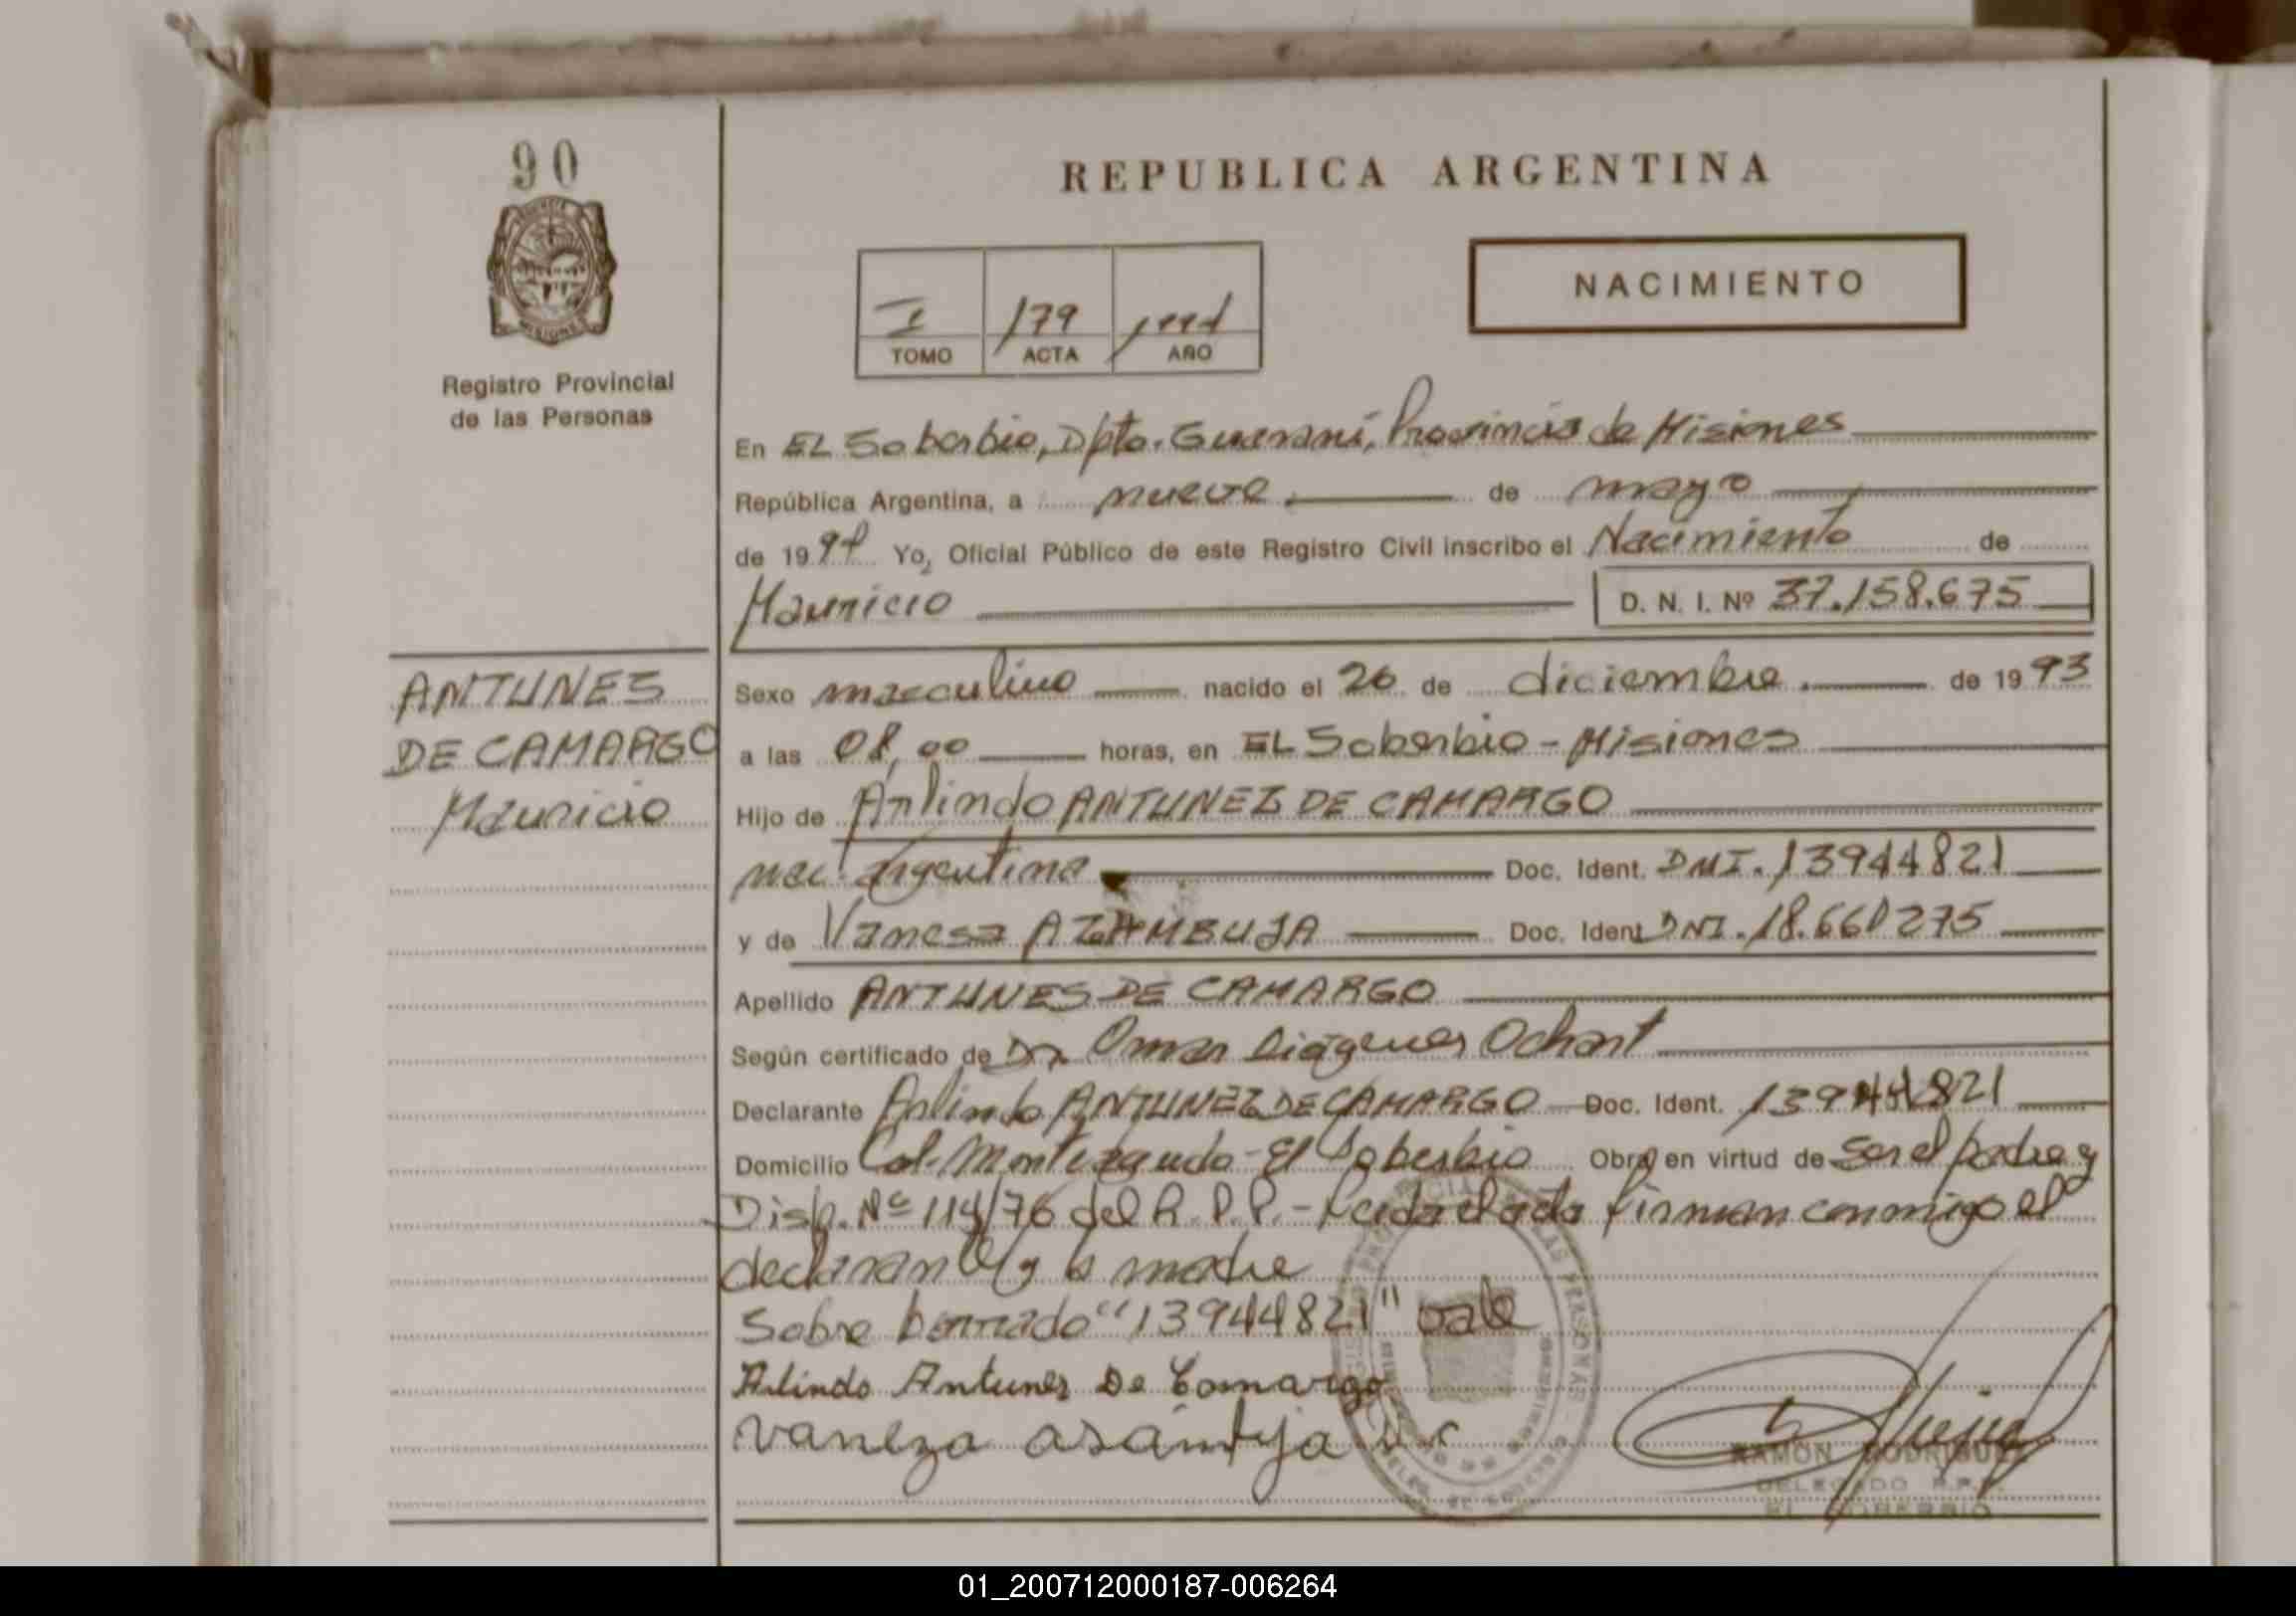 90
Registro Provincial
de las Personas
ANTUNES
DE CAMARGO
Mauricio
REPUBLICA ARGENTINA
NACIMIENTO
I 179
TOMO ACTA AÑO
En EL Soberbio, Dpto. Guaraní, Provincia de Misiones
República Argentina, a nueve de mayo
de 1994 Yo, Oficial Público de este Registro Civil inscribo el Nacimiento de
Mauricio D. N. I. Nº 37.158.675
Sexo masculino nacido el 26 de diciembre. de 1993
a las 08,00 horas, en EL Soberbio - Misiones
Hijo de Arlindo ANTUNEZ DE CAMARGO
nac. argentina Doc. Ident. DNI. 13944821
y de Vanesa AZAMBUJA Doc. Ident DNI. 18.660275
Apellido ANTUNES DE CAMARGO
Según certificado de Dr Omar Diógenes
Declarante Arlindo ANTUNEZ DE CAMARGO Doc. Ident. 13944821
Domicilio Col. Monteagudo - El Soberbio Obra en virtud de ser el padre y
Disp. Nº 114/76 del R.P.P. - Leida el acta firman conmigo el
declarante y la madre
Sobre borrado "13944821" vale
Arlindo Antunes De Camargo
Vaneza
RAMON RODRIGUEZ
DELEGADO R.P.P.
EL SOBERBIO
01_200712000187-006264